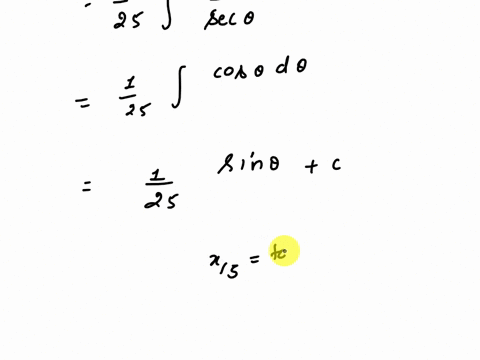 = 1/25 ∫ /sec θ
= 1/25 ∫ cos θ dθ
= 1/25 sin θ + c
x/5 =